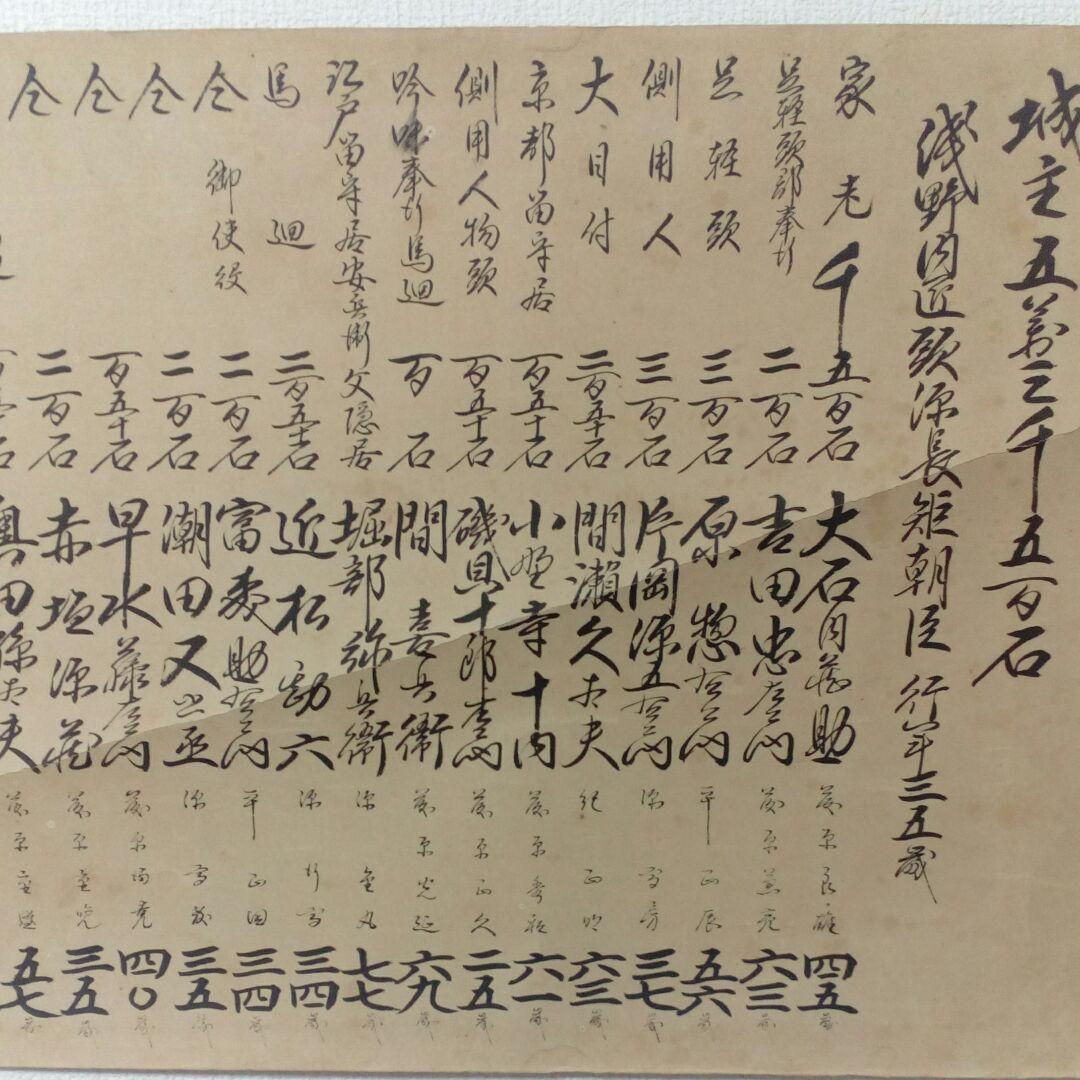 城主 五萬三千五百石
浅野内匠頭源長矩朝臣 行年三五歳
家老 千五百石 大石内蔵助 藤原良雄 四五歳
足軽頭郡奉行 二百石 吉田忠左衛門 藤原兼亮 六三歳
足軽頭 三百石 原惣右衛門 平正辰 五六歳
側用人 三百石 片岡源五右衛門 源高房 三七歳
大目付 二百五十石 間瀬久太夫 紀正明 六三歳
京都留守居 百五十石 小野寺十内 藤原秀和 六一歳
側用人物頭 百五十石 磯貝十郎左衛門 藤原正久 二五歳
吟味奉行馬廻 百石 間喜兵衛 藤原光延 六九歳
江戸留守居安兵衛父隠居 堀部弥兵衛 源金丸 七七歳
馬廻 二百五十石 近松勘六 源行重 三四歳
仝 御使役 二百石 富森助右衛門 平正因 三四歳
仝 二百石 潮田又之丞 源高教 三五歳
仝 百五十石 早水藤左衛門 藤原満尭 四〇歳
仝 二百石 赤垣源蔵 藤原重 三五歳
仝 百五十石 奥田孫太夫 藤原重盛 五七歳